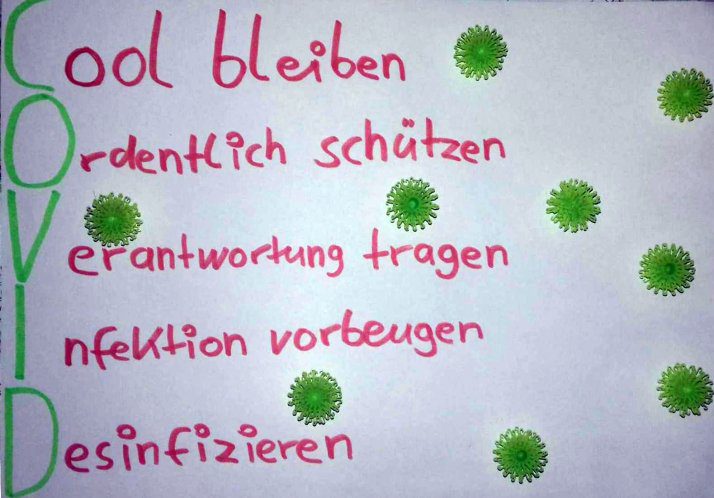 Cool bleiben
Ordentlich schützen
Verantwortung tragen
Infektion vorbeugen
Desinfizieren